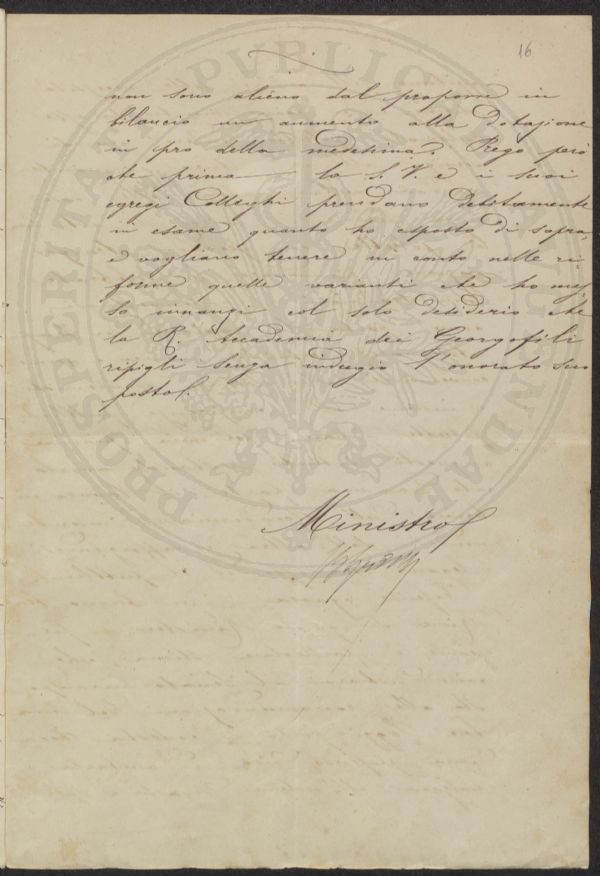 16
non sono alieno dal proporre in
bilancio un aumento alla dotazione
in pro della medesima. Prego però
che prima la S. V. e i suoi
egregi Colleghi prendano debitamente
in esame quanto ho esposto di sopra,
e vogliano tenere in conto nelle ri-
forme quelle varianti che ho mes-
so innanzi col solo desiderio che
la R. Accademia dei Georgofili
ripigli senza indugio l'onorato suo
posto.
Ministro
PROSPERITATI PUBLICAE AUGENDAE